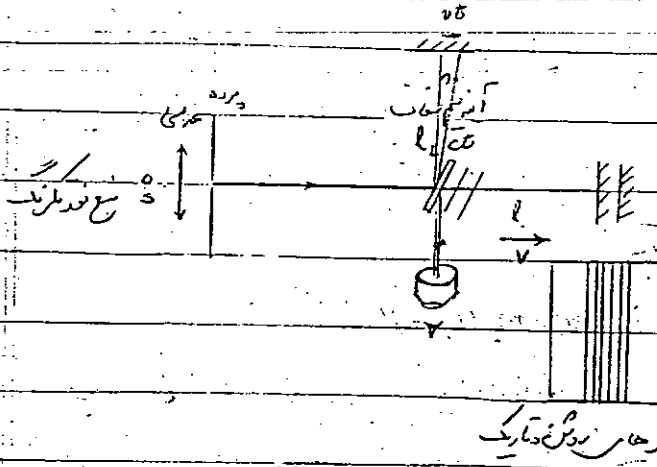 vt
پرده
عدسی
آئینه نیم شفاف
l
منبع نور تکرنگ
S
l
v
نوارهای روشن و تاریک